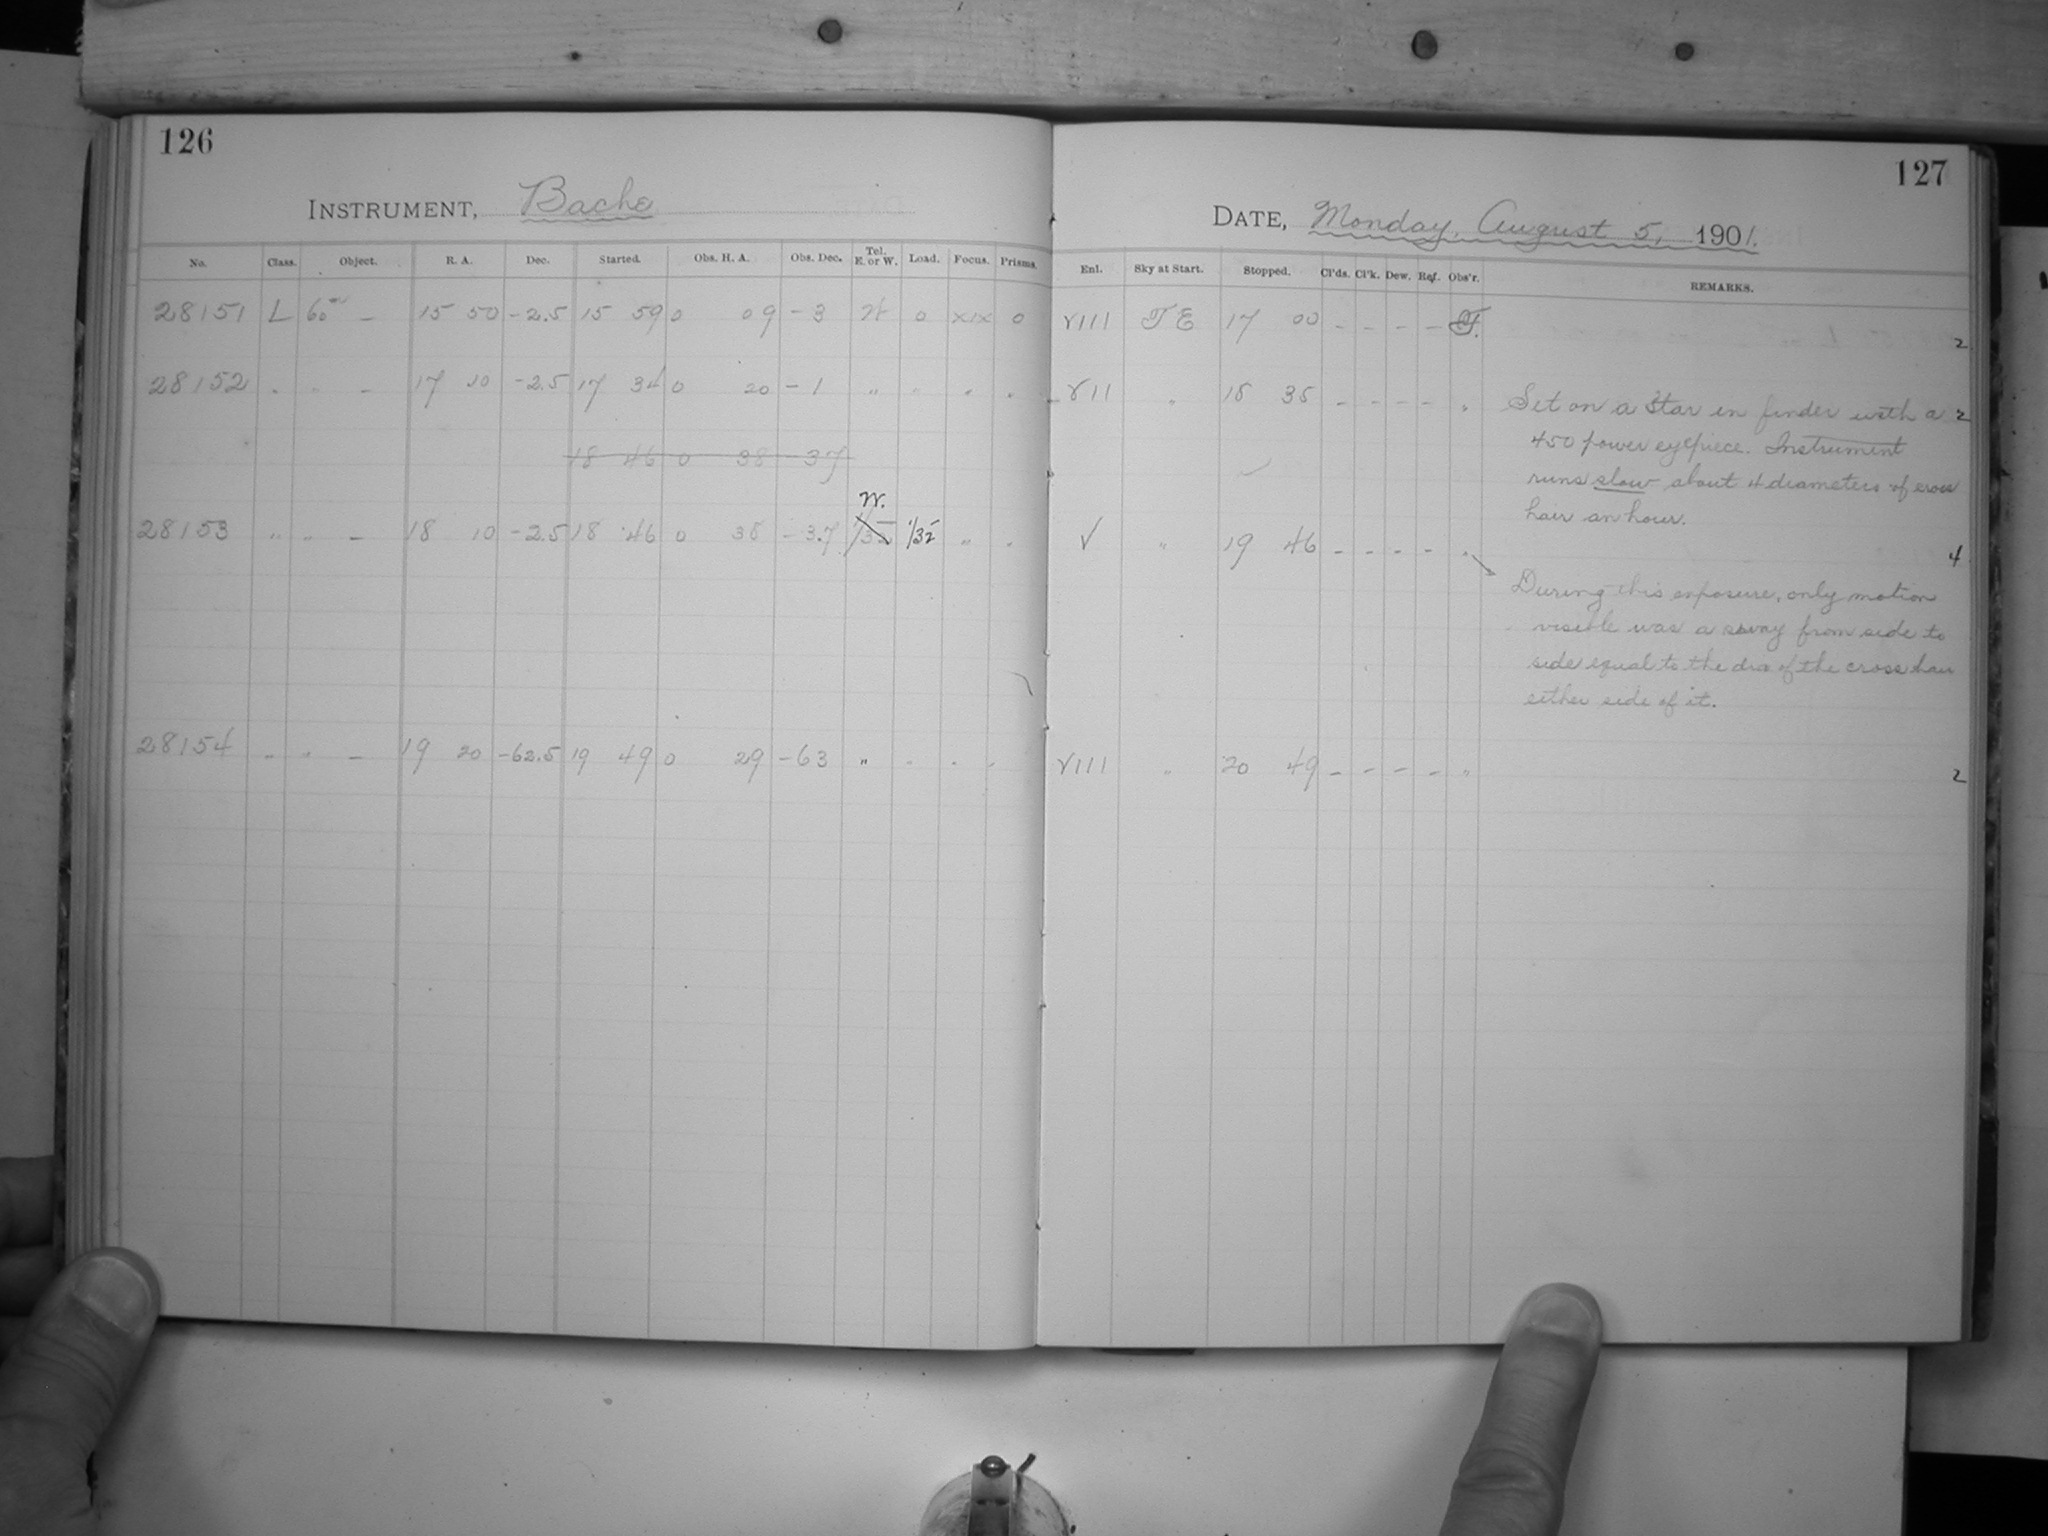 126
INSTRUMENT, Bache
No. Class. Object. R. A. Dec. Started. Obs. H. A. Obs. Dec. Tel. E. or W. Load. Focus. Prisms.
28151 L 60m – 15 50 -2.5 15 59 0 09 -3 W 0 XIX 0
28152 " " – 17 10 -2.5 17 34 0 20 -1 " " " "
18 46 0 38 -37
W.
28153 " " – 18 10 -2.5 18 46 0 38 -3.7 1/32 " "
28154 " " – 19 20 -62.5 19 49 0 29 -63 " " " "
127
DATE, Monday, August 5, 1901.
Enl. Sky at Start. Stopped. Cl'ds. Cl'k. Dew. Ref. Obs'r. REMARKS.
VIII TE 17 00 – – – – F. 2
VII " 18 35 – – – – " Set on a star in finder with a 2
450 power eyepiece. Instrument
runs slow about 4 diameters of cross
hair an hour.
V " 19 46 – – – – " 4
During this exposure, only motion
visible was a sway from side to
side equal to the dia. of the cross hair
either side of it.
VIII " 20 49 – – – – " 2